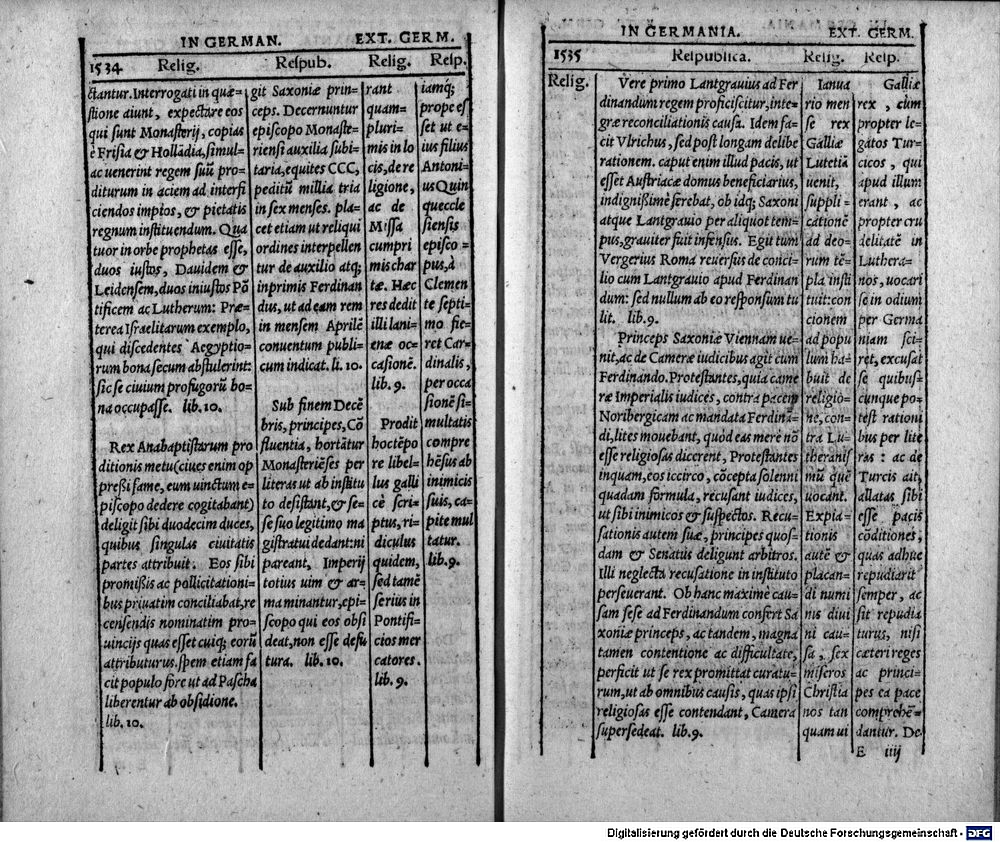 IN GERMAN. EXT. GERM.
1534 Relig. Reſpub. Relig. Reſp.
ctantur. Interrogati in quæ-
ſtione aiunt, expectare eos
qui ſunt Monaſterij, copias
è Friſia & Hollãdia, ſimul-
ac uenerint regem ſuũ pro-
diturum in aciem ad interfi
ciendos impios, & pietatis
regnum inſtituendum. Qua
tuor in orbe prophetas eſſe,
duos iuſtos, Dauidem &
Leidenſem, duos iniuſtos Põ
tificem ac Lutherum: Præ-
terea Iſraelitarum exemplo,
qui diſcedentes Aegyptio-
rum bona ſecum abſtulerint:
ſic ſe ciuium profugorũ bo-
na occupaſſe. lib. 10.
Rex Anabaptiſtarum pro
ditionis metu (ciues enim op
preßi fame, eum uinctum e-
piſcopo dedere cogitabant)
deligit ſibi duodecim duces,
quibus ſingulas ciuitatis
partes attribuit. Eos ſibi
promißis ac pollicitationi-
bus priuatim conciliabat, re
cenſendis nominatim pro-
uincijs quas eſſet cuiq; eorũ
attributurus. ſpem etiam fa
cit populo fore ut ad Paſcha
liberentur ab obſidione.
lib. 10.
git Saxoniæ prin-
ceps. Decernuntur
epiſcopo Monaſte-
rienſi auxilia ſubi-
taria, equites CCC,
peditũ millia tria
in ſex menſes. pla-
cet etiam ut reliqui
ordines interpellen
tur de auxilio atq;
inprimis Ferdinan
dus, ut ad eam rem
in menſem Aprilẽ
conuentum publi-
cum indicat. li. 10.
Sub finem Decẽ
bris, principes, Cõ
fluentia, hortãtur
Monaſteriẽſes per
literas ut ab inſtitu
to deſiſtant, & ſe-
ſe ſuo legitimo ma
giſtratui dedant: ni
pareant, Imperij
totius uim & ar-
ma minantur, epi-
ſcopo qui eos obſi
deat, non eſſe defu
tura. lib. 10.
rant
quam-
pluri-
mis in lo
cis, de re
ligione,
ac de
Miſſa
cumpri
mis char
tæ. Hæc
res dedit
illi lani-
enæ oc-
caſionẽ.
lib. 9.
Prodit
hoctẽpo
re libel-
lus galli
cè ſcri-
ptus, ri-
diculus
quidem,
ſed tamẽ
ſerius in
Pontifi-
cios mer
catores.
lib. 9.
iamq;
prope eſ
ſet ut e-
ius filius
Antoni-
us Quin
queccle
ſienſis
epiſco-
pus, à
Clemen
te ſepti-
mo fie-
ret Car-
dinalis,
per occa
ſionẽ ſi-
multatis
compre
hẽſus ab
inimicis
ſuis, ca-
pite mul
tatur.
lib. 9.
IN GERMANIA. EXT. GERM.
1535 Reſpublica. Relig. Reſp.
Relig.
Vere primo Lantgrauius ad Fer
dinandum regem proficiſcitur, inte-
græ reconciliationis cauſa. Idem fa-
cit Vlrichus, ſed poſt longam delibe
rationem. caput enim illud pacis, ut
eſſet Auſtriacæ domus beneficiarius,
indignißimè ferebat, ob idq; Saxoni
atque Lantgrauio per aliquot tem-
pus, grauiter fuit infenſus. Egit tum
Vergerius Roma reuerſus de conci-
lio cum Lantgrauio apud Ferdinan
dum: ſed nullum ab eo reſponſum tu
lit. lib. 9.
Princeps Saxoniæ Viennam ue-
nit, ac de Cameræ iudicibus agit cum
Ferdinando. Proteſtantes, quia came
ræ Imperialis iudices, contra pacem
Noribergicam ac mandata Ferdinã-
di, lites mouebant, quòd eas merè nõ
eſſe religioſas dicerent, Proteſtantes
inquam, eos iccirco, cõcepta ſolenni
quadam formula, recuſant iudices,
ut ſibi inimicos & ſuſpectos. Recu-
ſationis autem ſuæ, principes quoſ-
dam & Senatus deligunt arbitros.
Illi neglecta recuſatione in inſtituto
perſeuerant. Ob hanc maximè cau-
ſam ſeſe ad Ferdinandum confert Sa
xoniæ princeps, ac tandem, magna
tamen contentione ac difficultate,
perficit ut ſe rex promittat curatu-
rum, ut ab omnibus cauſis, quas ipſi
religioſas eſſe contendant, Camera
ſuperſedeat. lib. 9.
Ianua
rio men
ſe rex
Galliæ
Lutetiã
uenit,
ſuppli-
cationẽ
ad deo-
rum tẽ-
pla inſti
tuit: con
cionem
ad popu
lum ha-
buit de
religio-
ne, con-
tra Lu-
theraniſ
mũ quẽ
uocant.
Expia-
tionis
autẽ &
placan-
di numi
nis diui
ni cau-
ſa, ſex
miſeros
Chriſtia
nos tan
quam ui
Galliæ
rex, cùm
propter le-
gatos Tur-
cicos, qui
apud illum
erant, ac
propter cru
delitatẽ in
Luthera-
nos, uocari
ſe in odium
per Germa
niam ſci-
ret, excuſat
ſe quibuſ-
cunque po-
teſt rationi
bus per lite
ras: ac de
Turcis ait,
allatas ſibi
eſſe pacis
cõditiones,
quas adhuc
repudiarit
ſemper, ac
ſit repudia
turus, niſi
cæteri reges
ac princi-
pes ea pace
comprehẽ-
dantur. De
E iiij
Digitalisierung gefördert durch die Deutsche Forschungsgemeinschaft - DFG